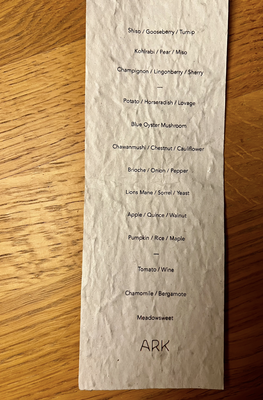 Shiso / Gooseberry / Turnip
Kohlrabi / Pear / Miso
Champignon / Lingonberry / Sherry
—
Potato / Horseradish / Lovage
Blue Oyster Mushroom
Chawanmushi / Chestnut / Cauliflower
Brioche / Onion / Pepper
Lions Mane / Sorrel / Yeast
Apple / Quince / Walnut
Pumpkin / Rice / Maple
—
Tomato / Wine
Chamomile / Bergamote
Meadowsweet
ARK